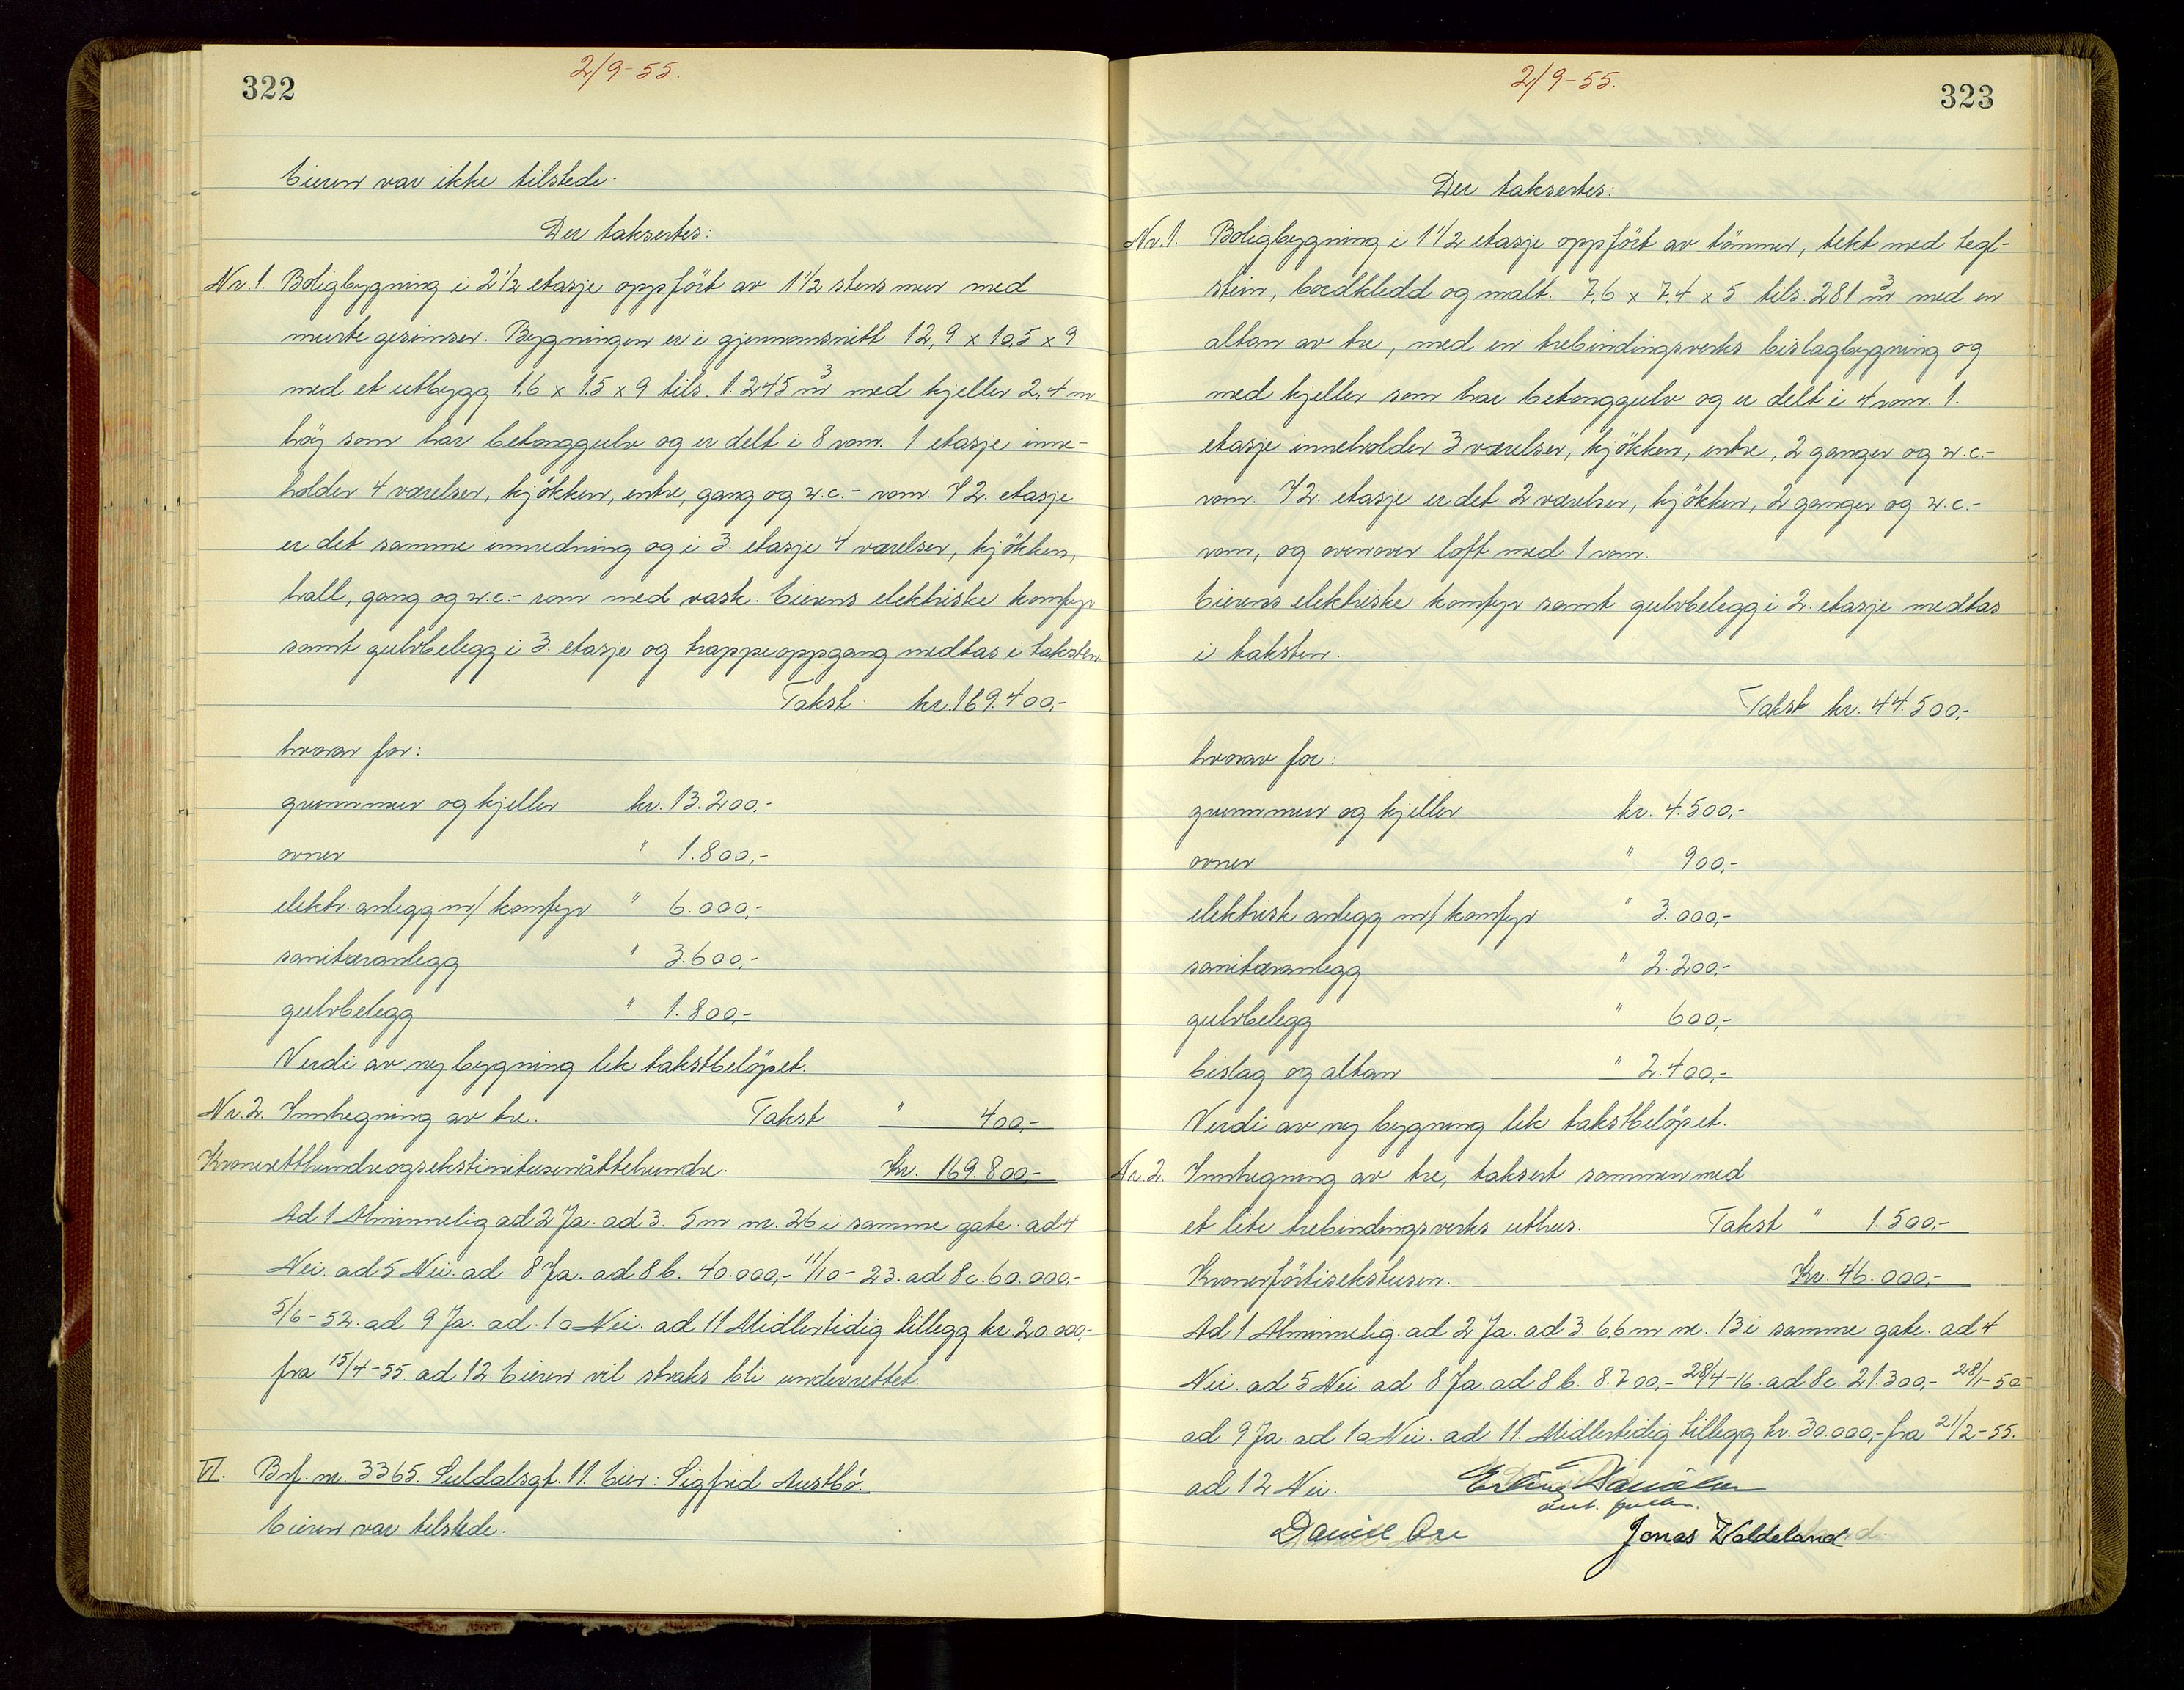 322
2/9-55.
Eieren var ikke tilstede.
Der taksertes:
Nr. 1. Boligbygning i 2 1/2 etasje oppført av 1 1/2 stens mur med
murte gesimser. Bygningen er i gjennomsnitt 12,9 x 10,5 x 9
med et utbygg 1,6 x 1,5 x 9 tils. 1.245 m³ med kjeller 2,4 m
høy som har betonggulv og er delt i 8 rom. 1. etasje inne-
holder 4 værelser, kjøkken, entre, gang og w.c.- rom. I 2. etasje
er det samme innredning og i 3. etasje 4 værelser, kjøkken,
hall, gang og w.c.- rom med vask. Eierens elektriske komfyr
samt gulvbelegg i 3. etasje og trappeoppgang medtas i taksten.
Takst kr. 169.400,-
hvorav for:
grunnmur og kjeller kr. 13.200,-
ovner " 1.800,-
elektr. anlegg m/ komfyr " 6.000,-
sanitæranlegg " 3.600,-
gulvbelegg " 1.800,-
Verdi av ny bygning lik takstbeløpet.
Nr. 2. Innhegning av tre. Takst " 400,-
Kroneretthundreogsekstinitusenåttehundre. Kr. 169.800,-
Ad 1 Alminnelig ad 2 Ja. ad 3. 5 m nr. 26 i samme gate. ad 4
Nei. ad 5 Nei. ad 8 Ja. ad 8 b. 40.000,- 11/10-23. ad 8c. 60.000,-
5/6-52. ad 9 Ja. ad. 10 Nei. ad 11 Midlertidig tillegg kr 20.000,-
fra 15/4-55. ad 12. Eieren vil straks bli underrettet.
VI. Brf. nr. 3365. Suldalsgt. 11. Eier: Sigfrid Austbø.
Eieren var tilstede.
323
2/9-55.
Der taksertes:
Nr. 1. Boligbygning i 1 1/2 etasje oppført av tømmer, tekt med tegl-
stein, bordkledd og malt. 7,6 x 7,4 x 5 tils. 281 m³ med en
altan av tre, med en trebindingsverks bislagbygning og
med kjeller som har betonggulv og er delt i 4 rom. 1.
etasje inneholder 3 værelser, kjøkken, entre, 2 ganger og w.c.-
rom. I 2. etasje er det 2 værelser, kjøkken, 2 ganger og w.c.-
rom, og ovenover loft med 1 rom.
Eierens elektriske komfyr samt gulvbelegg i 2. etasje medtas
i taksten.
Takst kr. 44.500,-
hvorav for:
grunnmur og kjeller kr. 4.500,-
ovner " 900,-
elektrisk anlegg m/ komfyr " 3.000,-
sanitæranlegg " 2.200,-
gulvbelegg " 600,-
bislag og altan " 2.400,-
Verdi av ny bygning lik takstbeløpet.
Nr. 2. Innhegning av tre, taksert sammen med
et lite trebindingsverks uthus. Takst " 1.500,-
Kronerførtisekstusen. Kr. 46.000,-
Ad 1 Alminnelig. ad 2 Ja. ad 3. 6,6 m nr. 13 i samme gate. ad 4
Nei. ad 5 Nei. ad 8 Ja. ad 8 b. 8.700,- 28/4-16. ad 8c. 21.300,- 28/1-50-
ad 9 Ja. ad 10 Nei. ad 11. Midlertidig tillegg kr. 30.000,- fra 21/2-55.
ad 12 Nei.
Jonas Waldeland